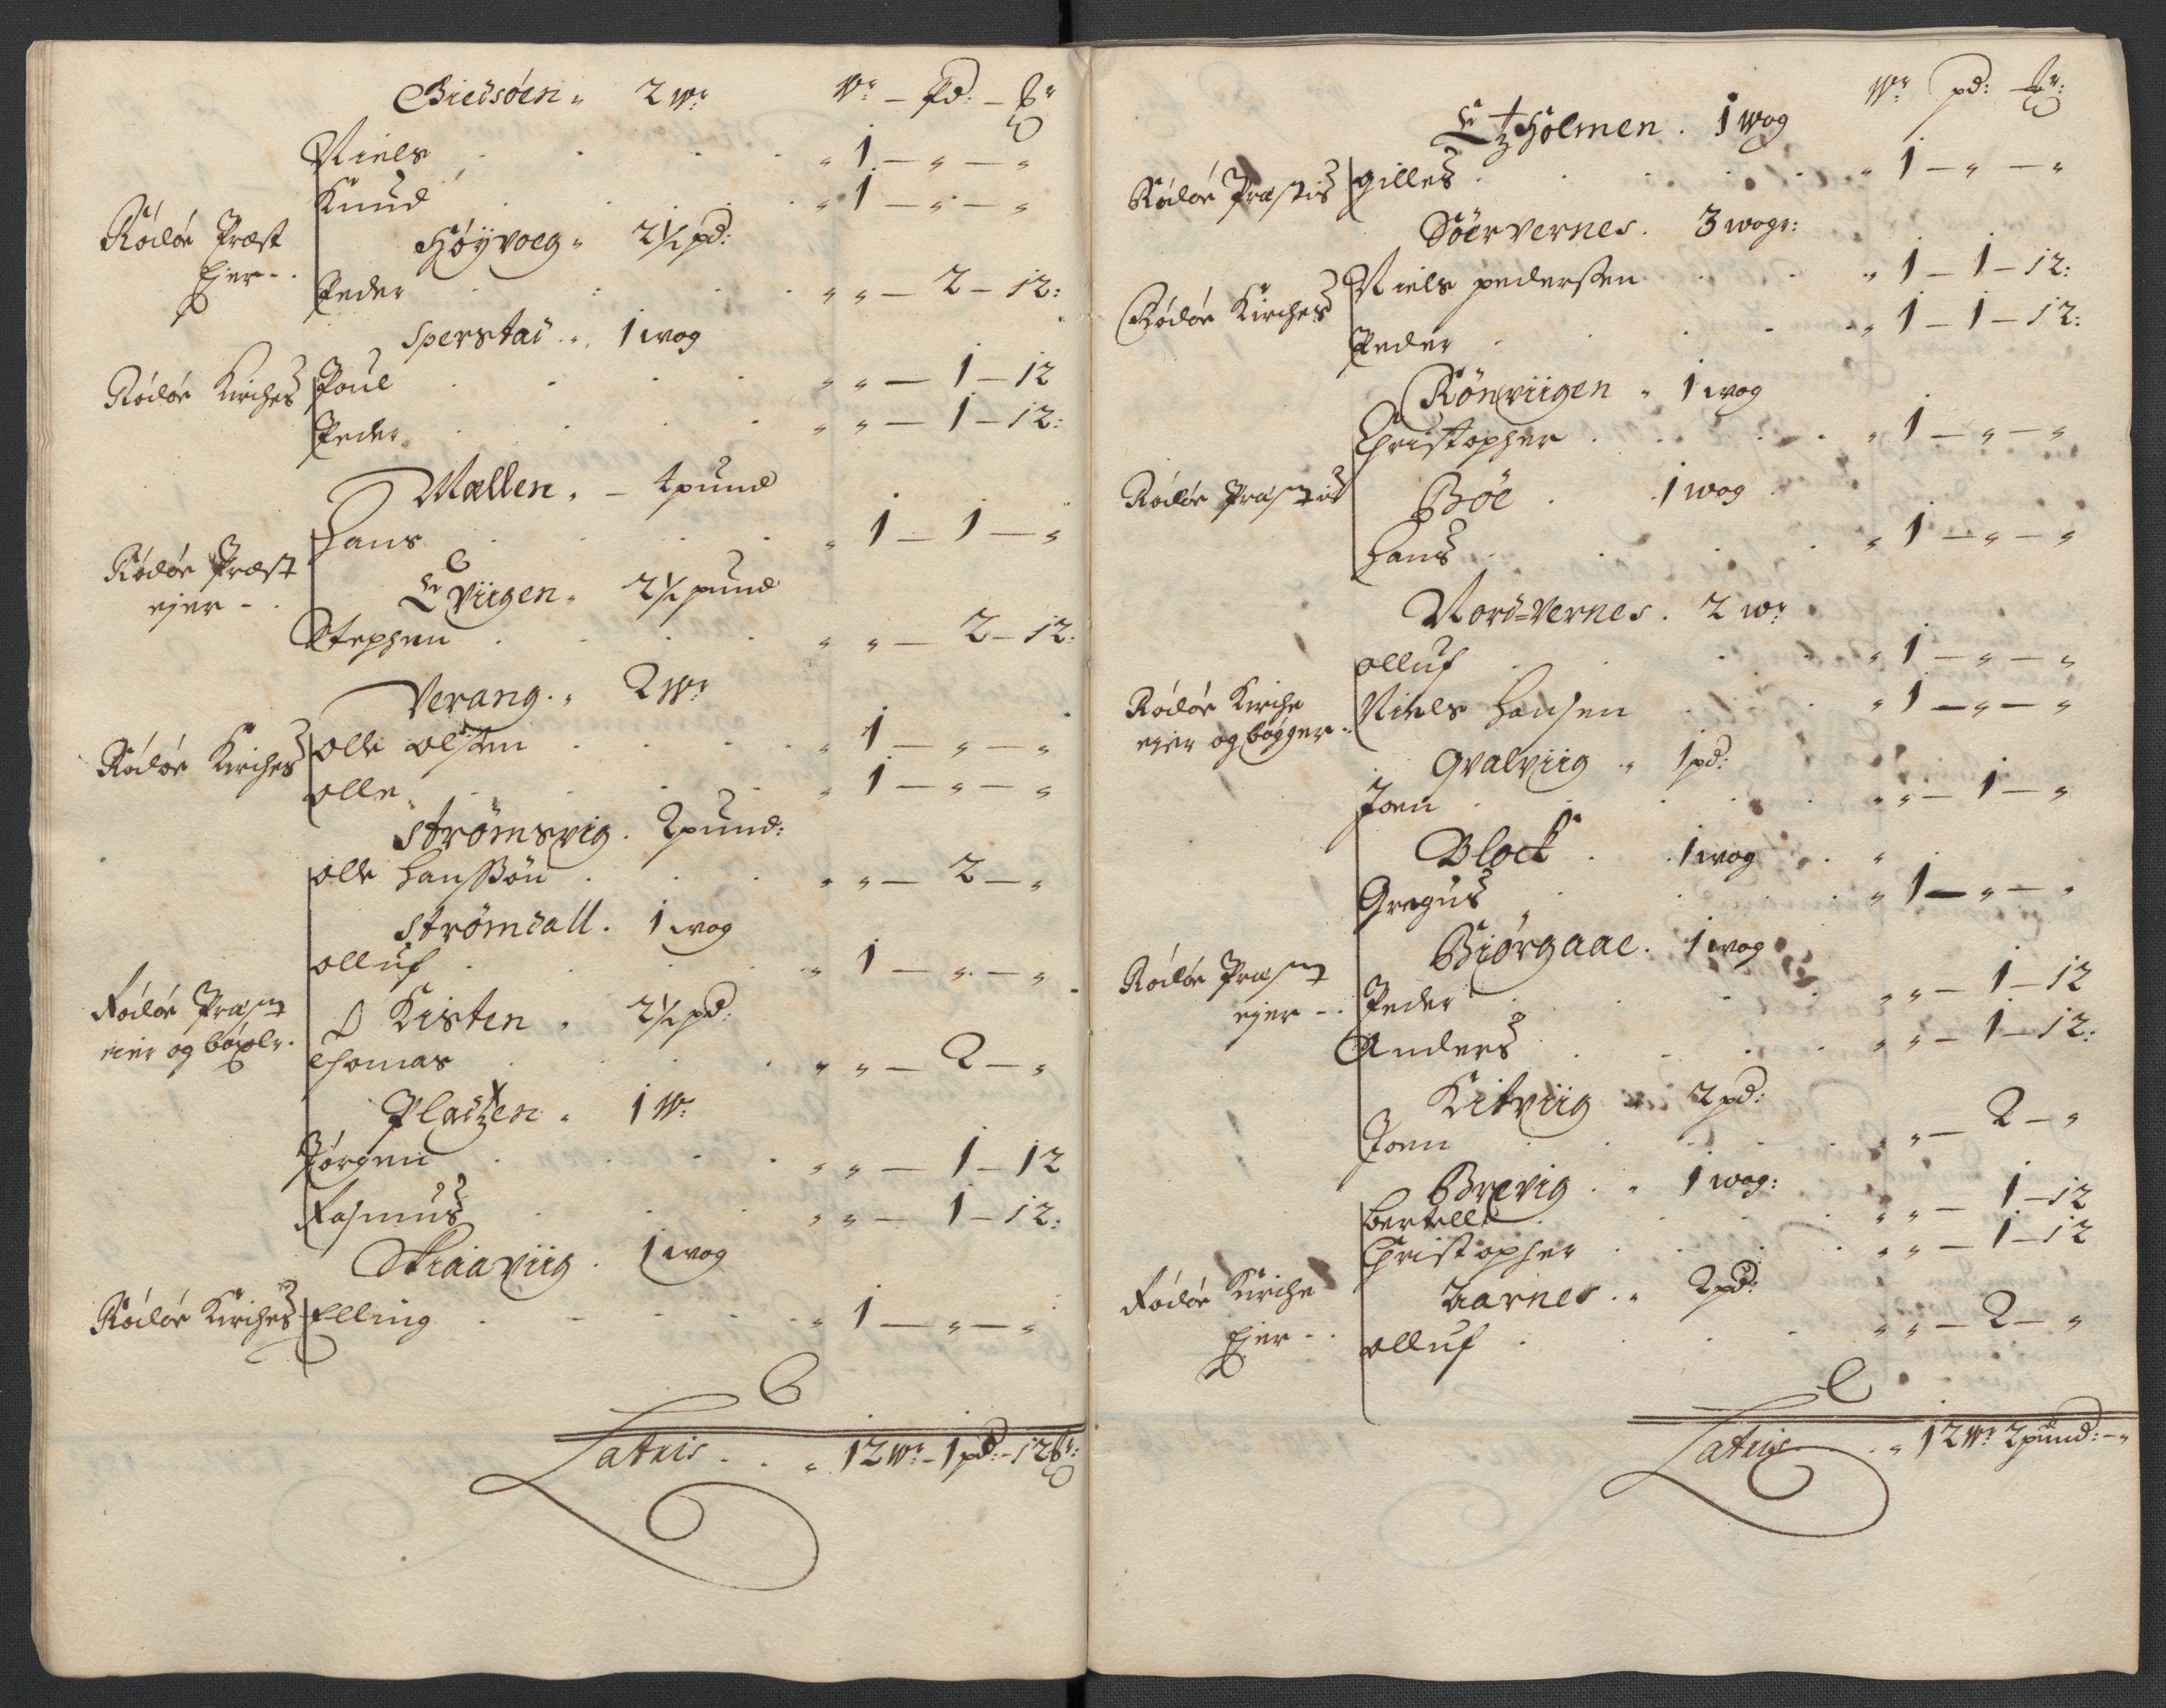 Giedsöen " 2 wr wr – Pd: – ℔r
Niels . . . . " 1 – " – "
Knud . . . . " 1 – " – "
Rödöe Præst
Ejer - .
Höÿvoeg " 2½ pd:
Peder . . . . " " – 2 – 12:
Sperstad . " 1 wog
Rödöe Kirches Poul . . . . " " – 1 – 12
Peder . . . . " " – 1 – 12:
Mællen " – 4 pund
Hans . . . . " 1 – 1 – "
Rödöe Præst
ejer - .
Viigen " 2½ pund
Stephen . . . . " " – 2 – 12:
Verang . " 2 wr
Rödöe Kirches Olle Olsen . . . . " 1 – " – "
Olle . . . . " 1 – " – "
Strömsvig . 2 pund:
Olle Hanssön . . . " " – 2 – "
Strömdall . 1 wog
Olluf . . . . " 1 – " – "
Rödöe Præst
eier og böxlr.
Kisten " 2½ pd:
Thomas . . . . " " – 2 – "
Pladzen " 1 wr
Jörgen . . . . " " – 1 – 12
Rasmus . . . " " – 1 – 12:
Skiaaviig . 1 wog
Rödöe Kirches Elling . . . . " 1 – " – "
Latris . . " 12 wr – 1 pd: – 12 ℔r:
wr pd: ℔r:
Holmen . 1 wog
Rödöe Præstis Gilles . . . . " 1 – " – "
Söervernes . 3 wogr:
Rödöe Kirches Niels Pedersen . . . " 1 – 1 – 12:
Peder . . . . " 1 – 1 – 12:
Rönviigen " 1 wog
Christopher . . . . " 1 – " – "
Rödöe Præstis
Böe . 1 wog
Hans . . . . " 1 – " – "
Nord=Vernes . 2 wr
Olluf . . . . " 1 – " – "
Rödöe Kirche
ejer og bögger -
Niels Hansen . . . " 1 – " – "
Qvalviig " 1 pd:
Joen . . . . " " – 1 – "
Block . 1 wog
Gregus . . . . " 1 – " – "
Biörgaae . 1 wog
Rödöe Præst
ejer - .
Peder . . . . " " – 1 – 12
Anders . . . . " " – 1 – 12:
Kitviig " 2 pd:
Joen . . . . " " – 2 – "
Brevig . " 1 wog:
Bertell . . . . " " – 1 – 12
Christopher . . . . " " – 1 – 12
Rödöe Kirche
Ejer - .
Aarnes . " 2 pd:
Olluf . . . . " " – 2 – "
Latris . . " 12 wr 2 pund: – "